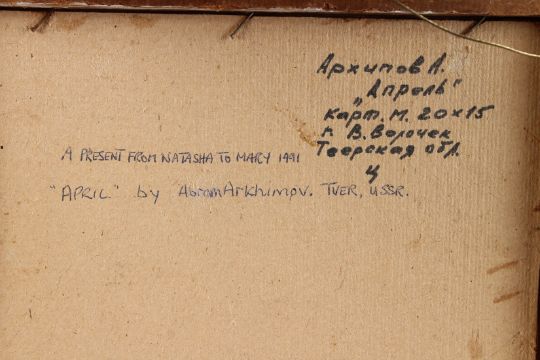 Архипов А.
„Апрель"
карт. м. 20х15
г. В. Волочек
Тверская обл.
ц
A PRESENT FROM NATASHA TO MARY 1991
"APRIL" by Abram Arkhimov. TVER, USSR.